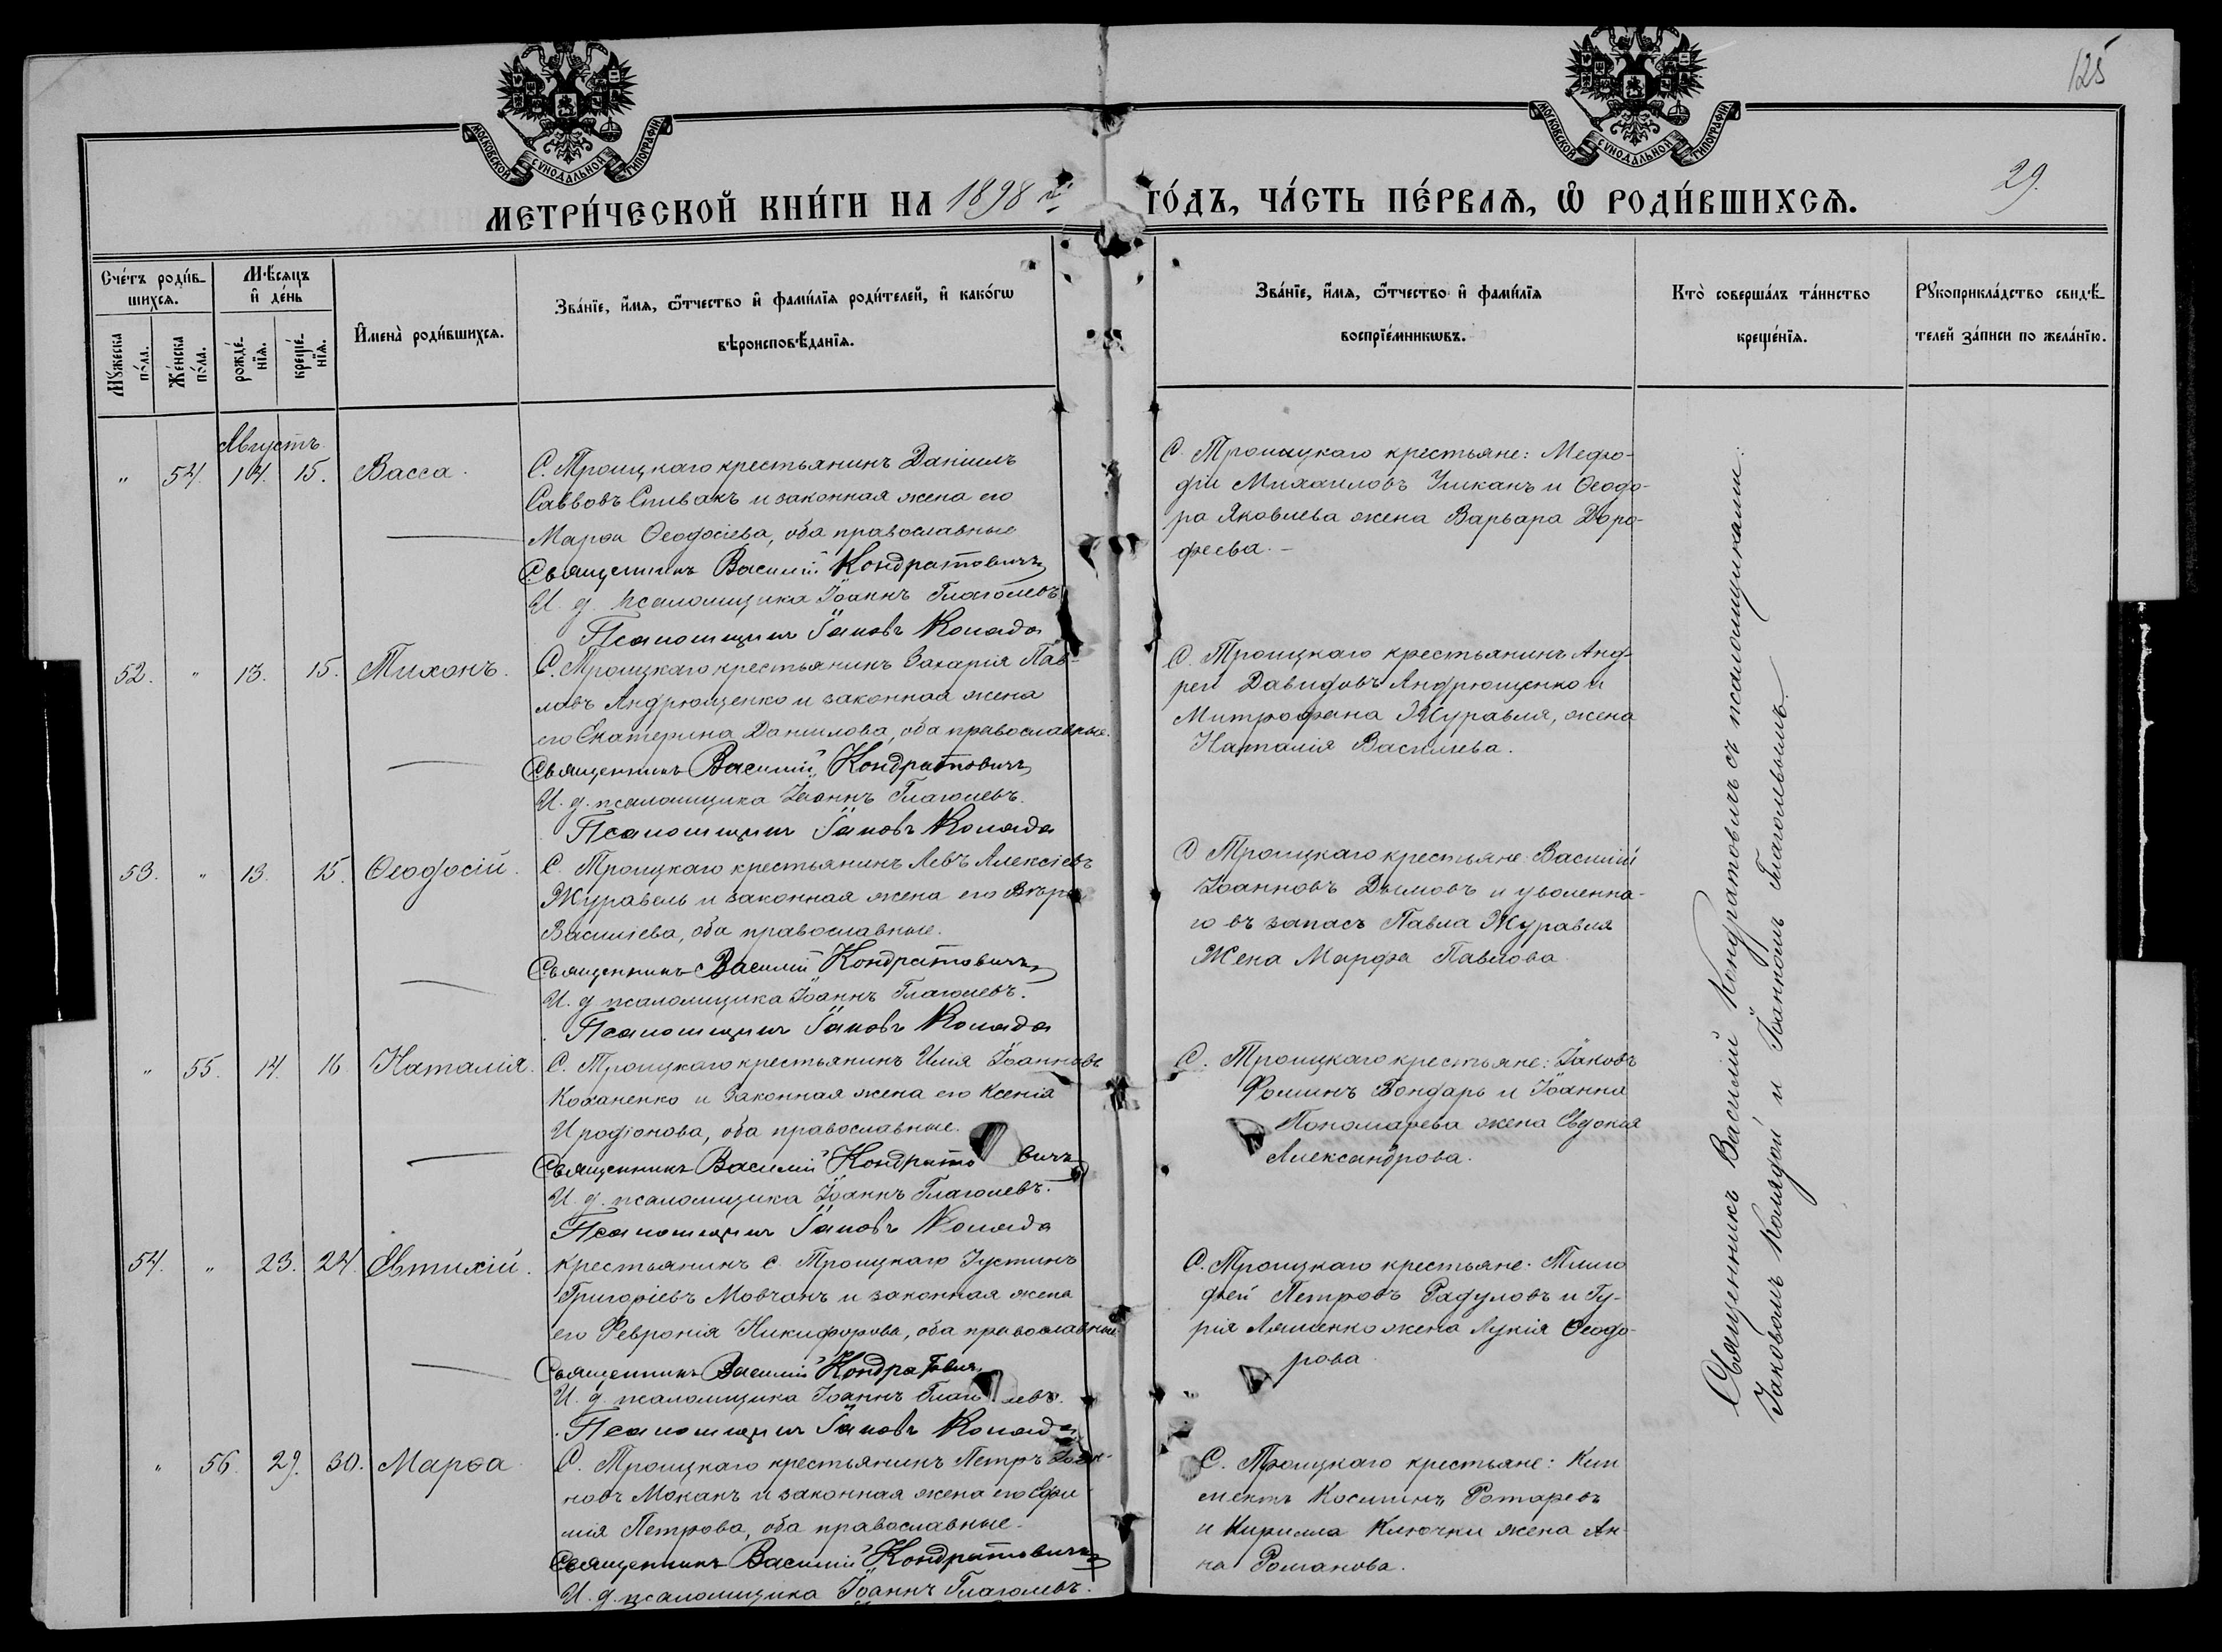 125
МОСКОВСКОЙ СѴНОДАЛЬНОЙ ТИПОГРАФІИ
МОСКОВСКОЙ СѴНОДАЛЬНОЙ ТИПОГРАФІИ
29.
МЕТРИ́ЧЕСКОЙ КНИ́ГИ НА 1898 й ГО́ДЪ, ЧА́СТЬ ПЕ́РВАѦ, Ѡ҆ РОДИ́ВШИХСѦ.
Сче́тъ роди́в-
шихсѧ.
Мꙋ́жеска по́ла.
Же́нска по́ла.
Мѣ́сѧцъ
и҆ де́нь
рожде́-
нїѧ.
креще́-
нїѧ.
И҆мена̀ роди́вшихсѧ.
Зва́нїе, и҆́мѧ, ѻ҆́тчество и҆ фами́лїѧ роди́телей, и҆ како́гѡ
вѣроисповѣ́данїѧ.
Зва́нїе, и҆́мѧ, ѻ҆́тчество и҆ фами́лїѧ
воспрїе́мникѡвъ.
Кто̀ соверша́лъ та́инство
креще́нїѧ.
Рꙋкоприкла́дство свидѣ́-
телей за́писи по жела́нїю.
Августъ
" 54. 14. 15. Васса.
С. Троицкаго крестьянинъ Даніилъ
Саввовъ Спивакъ и законная жена его
Марѳа Ѳеодосіева, оба православные
Священникъ Василій Кондратовичъ
И. д. псаломщика Іоаннъ Глаголевъ
Псаломщикъ Іаковъ Коляда
С. Троицкаго крестьяне: Меѳо-
дій Михаиловъ Уманъ и Ѳеодо-
ра Яковлева жена Варвара Доро-
феева. -
52. " 13. 15. Тихонъ.
С. Троицкаго крестьянинъ Захарія Пав-
ловъ Андрющенко и законная жена
его Екатерина Даниилова, оба православные.
Священникъ Василій Кондратовичъ
И. д. псаломщика Іоаннъ Глаголевъ.
Псаломщикъ Іаковъ Коляда
С. Троицкаго крестьянинъ Анд-
рей Давидовъ Андрющенко и
Митрофана Журавля, жена
Наталія Василіева.
53. " 13. 15. Ѳеодосій.
С. Троицкаго крестьянинъ Левъ Алексіевъ
Журавель и законная жена его Вѣра
Василіева, оба православные.
Священникъ Василій Кондратовичъ
И. д. псаломщика Іоаннъ Глаголевъ.
Псаломщикъ Іаковъ Коляда
С Троицкаго крестьяне Василій
Іоанновъ Дымовъ и уволенна-
го въ запасъ Павла Журавля
Жена Марфа Павлова
" 55. 14. 16 Наталія.
С. Троицкаго крестьянинъ Илія Іоанновъ
Коханенко и законная жена его Ксенія
Иродіонова, оба православные.
Священникъ Василій Кондратовичъ
И. д. псаломщика Іоаннъ Глаголевъ.
Псаломщикъ Іаковъ Коляда
С. Троицкаго крестьяне: Іаковъ
Ѳоминъ Бондарь и Іоанна
Пономарева жена Евдокія
Александрова.
54. " 23. 24. Евтихій.
крестьянинъ с. Троицкаго Іустинъ
Григоріевъ Мовчанъ и законная жена
его Февронія Никифорова, оба православные
Священникъ Василій Кондратовичъ
И. д. псаломщика Іоаннъ Глаголевъ.
Псаломщикъ Іаковъ Коляда
С. Троицкаго крестьяне: Тимо
фей Петровъ Радуловъ и Гу-
рія Ляшенко жена Лукія Ѳеодо-
рова
" 56 29. 30. Марѳа
С. Троицкаго крестьянинъ Петръ Іоан-
новъ Моканъ и законная жена его Ефи
мія Петрова, оба православные.
Священникъ Василій Кондратовичъ
И. д. псаломщика Іоаннъ Глаголевъ.
С. Троицкаго крестьяне: Кли
ментъ Косминъ Ротаревъ
и Кирилла Ключки жена Ан
на Романова.
Священникъ Василій Кондратовичъ съ псаломщиками:
Іаковомъ Колядой и Іоанномъ Глаголевымъ.